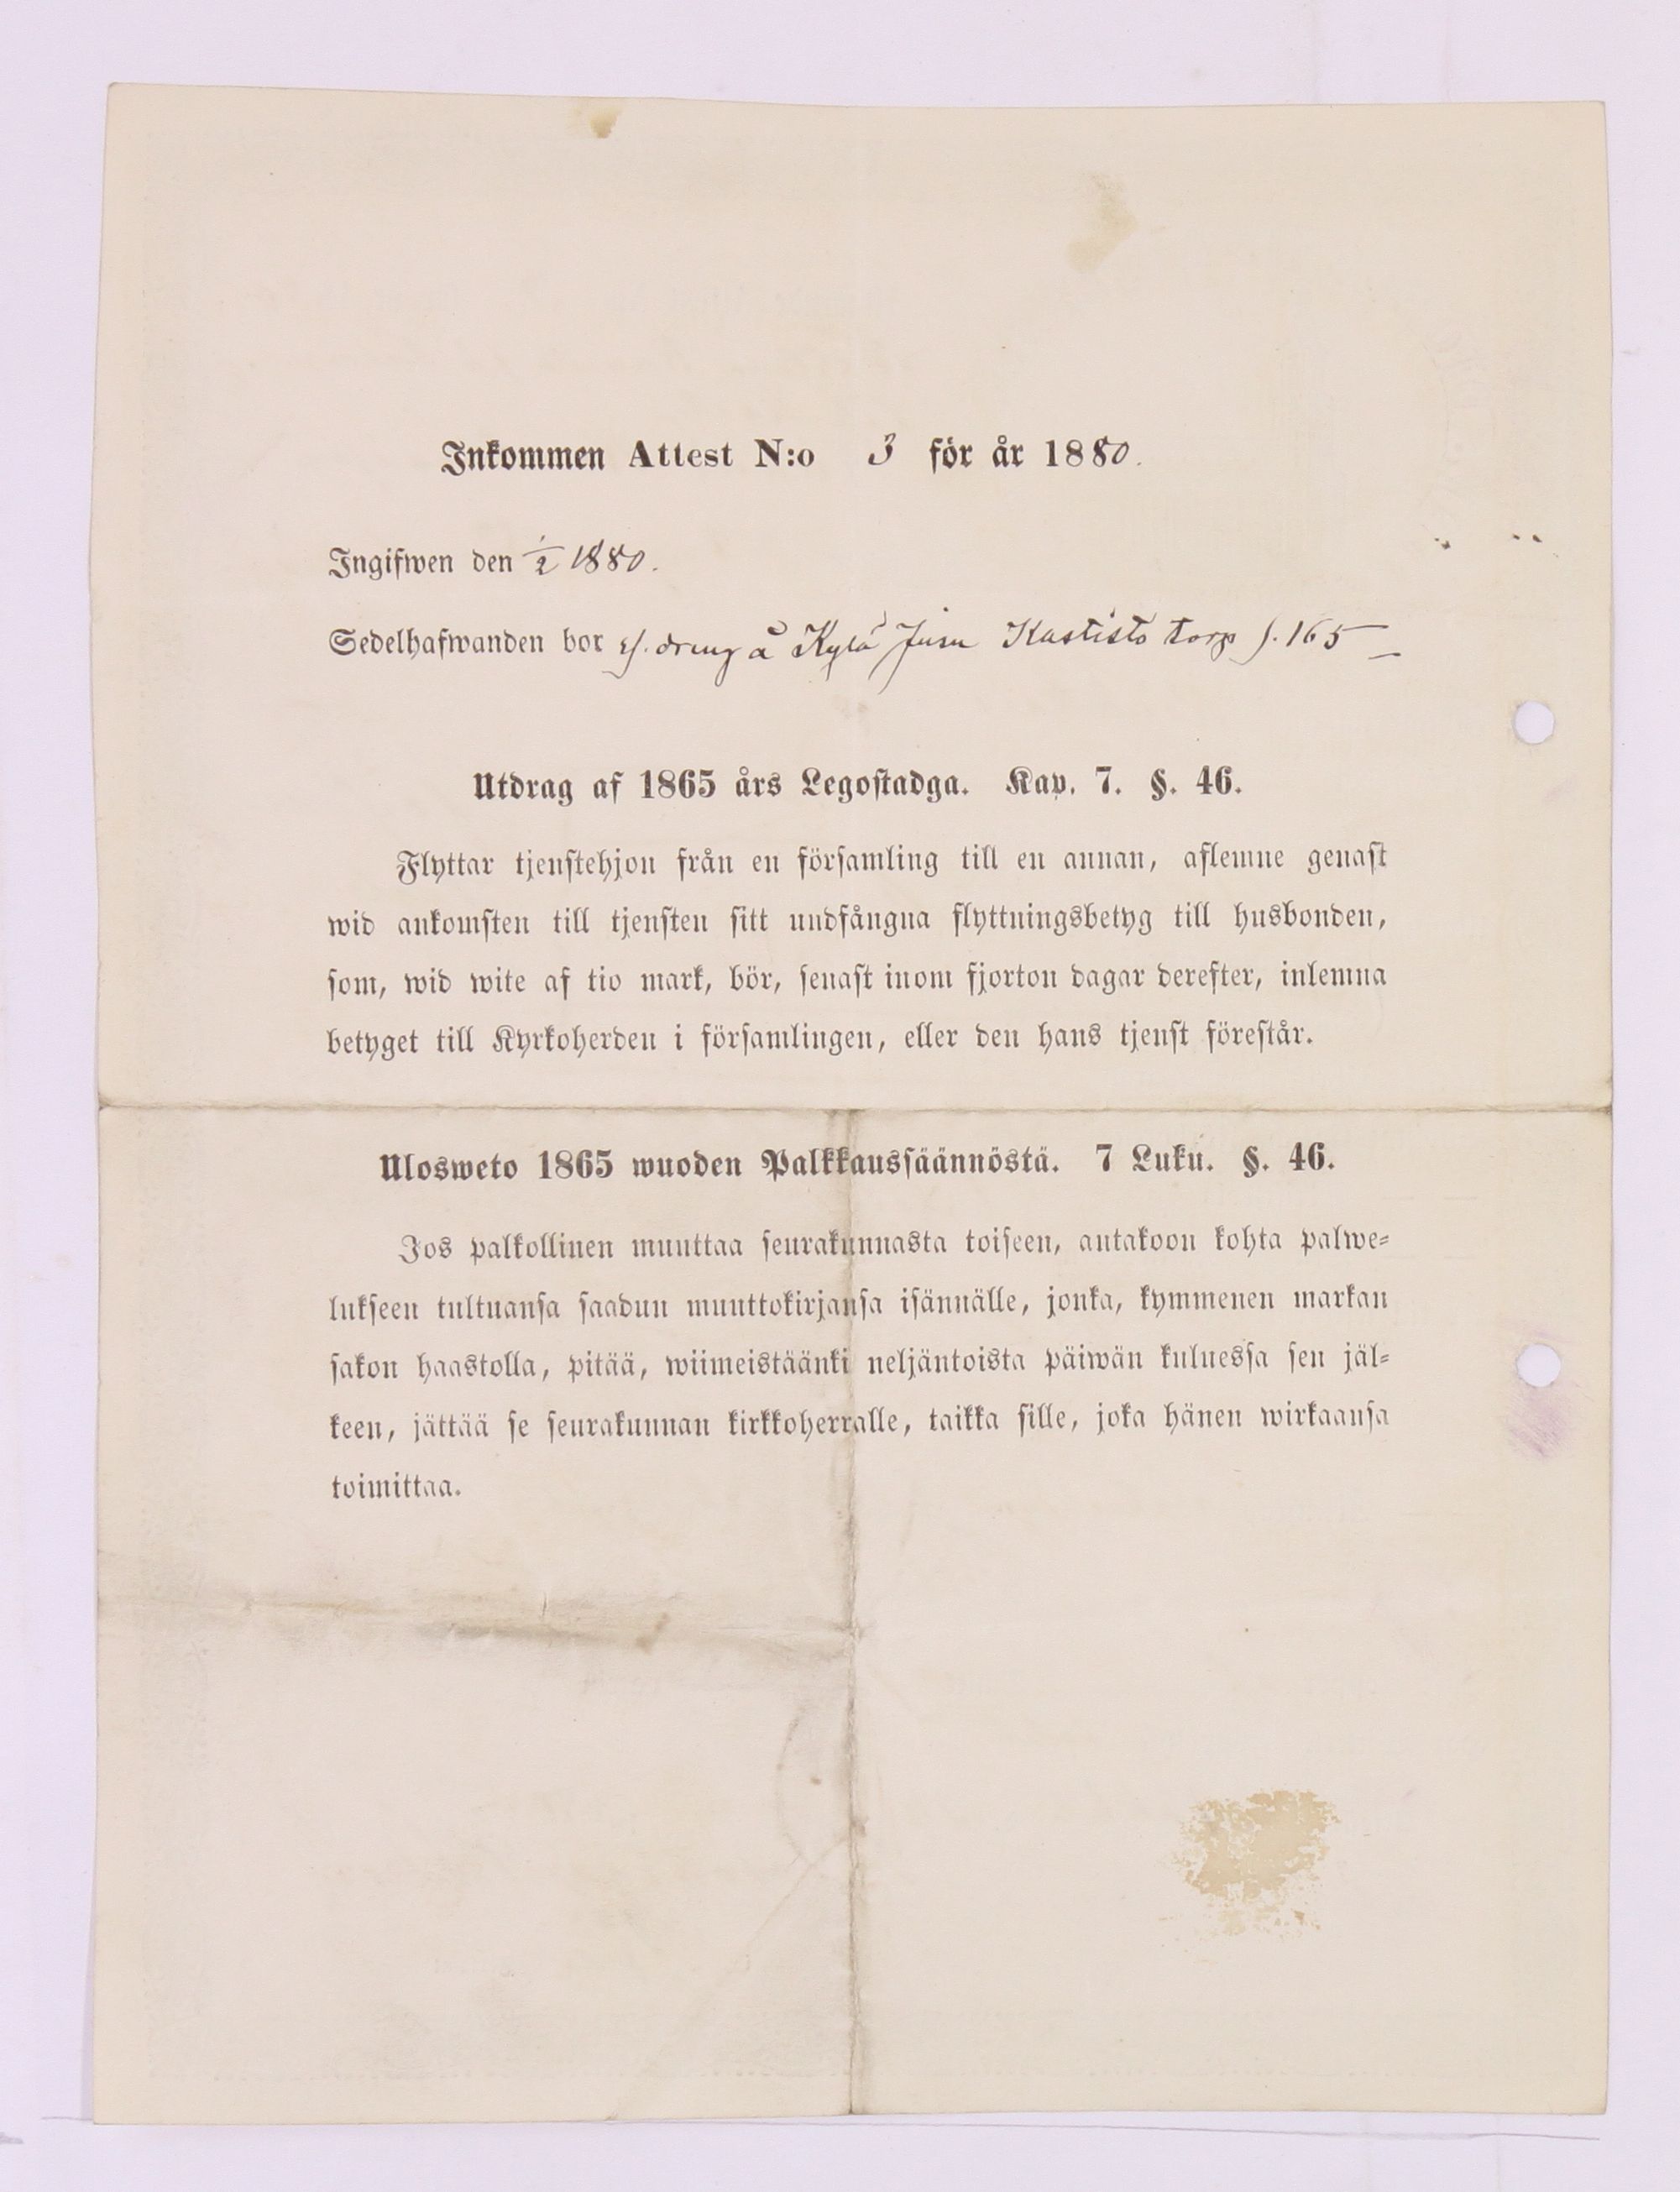 Inkommen Attest N:o 3 för år 1880.
Ingifwen den 1/2 1880.
Sedelhafwanden bor s/. dreng å Kylä Jusu Kastisto torp s. 165
Utdrag af 1865 års Legostadga. Kap. 7. §. 46.
Flyttar tjenstehjon från en församling till en annan, aflemne genast
wid ankomsten till tjensten sitt undfångna flyttningsbetyg till husbonden,
som, wid wite af tio mark, bör, senast inom fjorton dagar derefter, inlemna
betyget till Kyrkoherden i församlingen, eller den hans tjenst förestår.
Ulosweto 1865 wuoden Palkkaussäännöstä. 7 Luku. §. 46.
Jos palkollinen muuttaa seurakunnasta toiseen, antakoon kohta palwe-
lukseen tultuansa saadun muuttokirjansa isännälle, jonka, kymmenen markan
sakon haastolla, pitää, wiimeistäänki neljäntoista päiwän kuluessa sen jäl-
keen, jättää se seurakunnan kirkkoherralle, taikka sille, joka hänen wirkaansa
toimittaa.